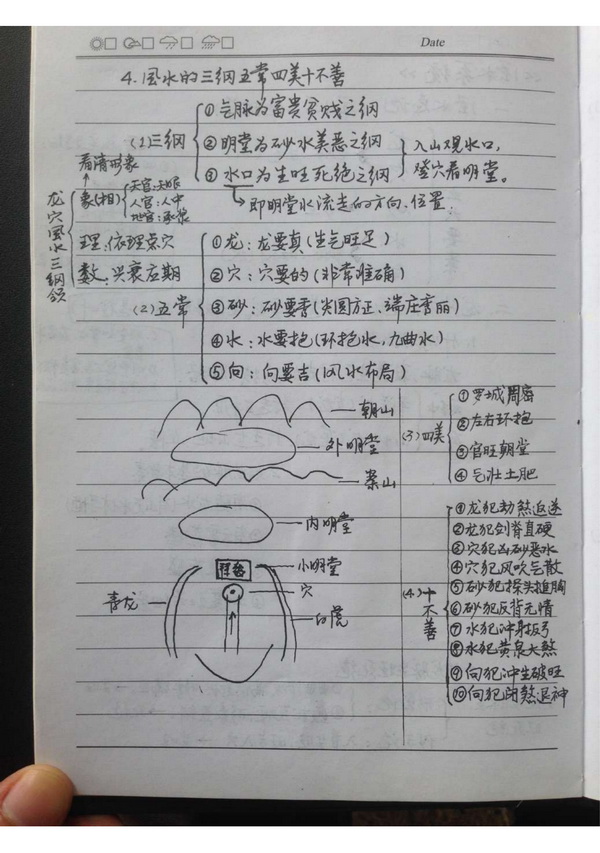 Date
4.风水的三纲五常四美十不善
(1)三纲
①气脉为富贵贫贱之纲
②明堂为砂水美恶之纲
③水口为生旺死绝之纲
入山观水口,
登穴看明堂。
即明堂水流走的方向、位置.
龙穴风水三纲领
看清形象
象(相)
天官:天眼
人官:人中
地官:
理:依理点穴
数:兴衰应期
(2)五常
①龙:龙要真(生气旺足)
②穴:穴要的(非常准确)
③砂:砂要秀(尖圆方正、端庄秀丽)
④水:水要抱(环抱水,九曲水)
⑤向:向要吉(风水布局)
朝山
外明堂
案山
内明堂
小明堂
穴
青龙
白虎
(3)四美
①罗城周密
②左右环抱
③官旺朝堂
④气壮土肥
(4)十不善
①龙犯劫煞返逆
②龙犯剑脊直硬
③穴犯凶砂恶水
④穴犯风吹气散
⑤砂犯探头搥胸
⑥砂犯反背无情
⑦水犯冲射扳弓
⑧水犯黄泉大煞
⑨向犯冲生破旺
⑩向犯闭煞退神